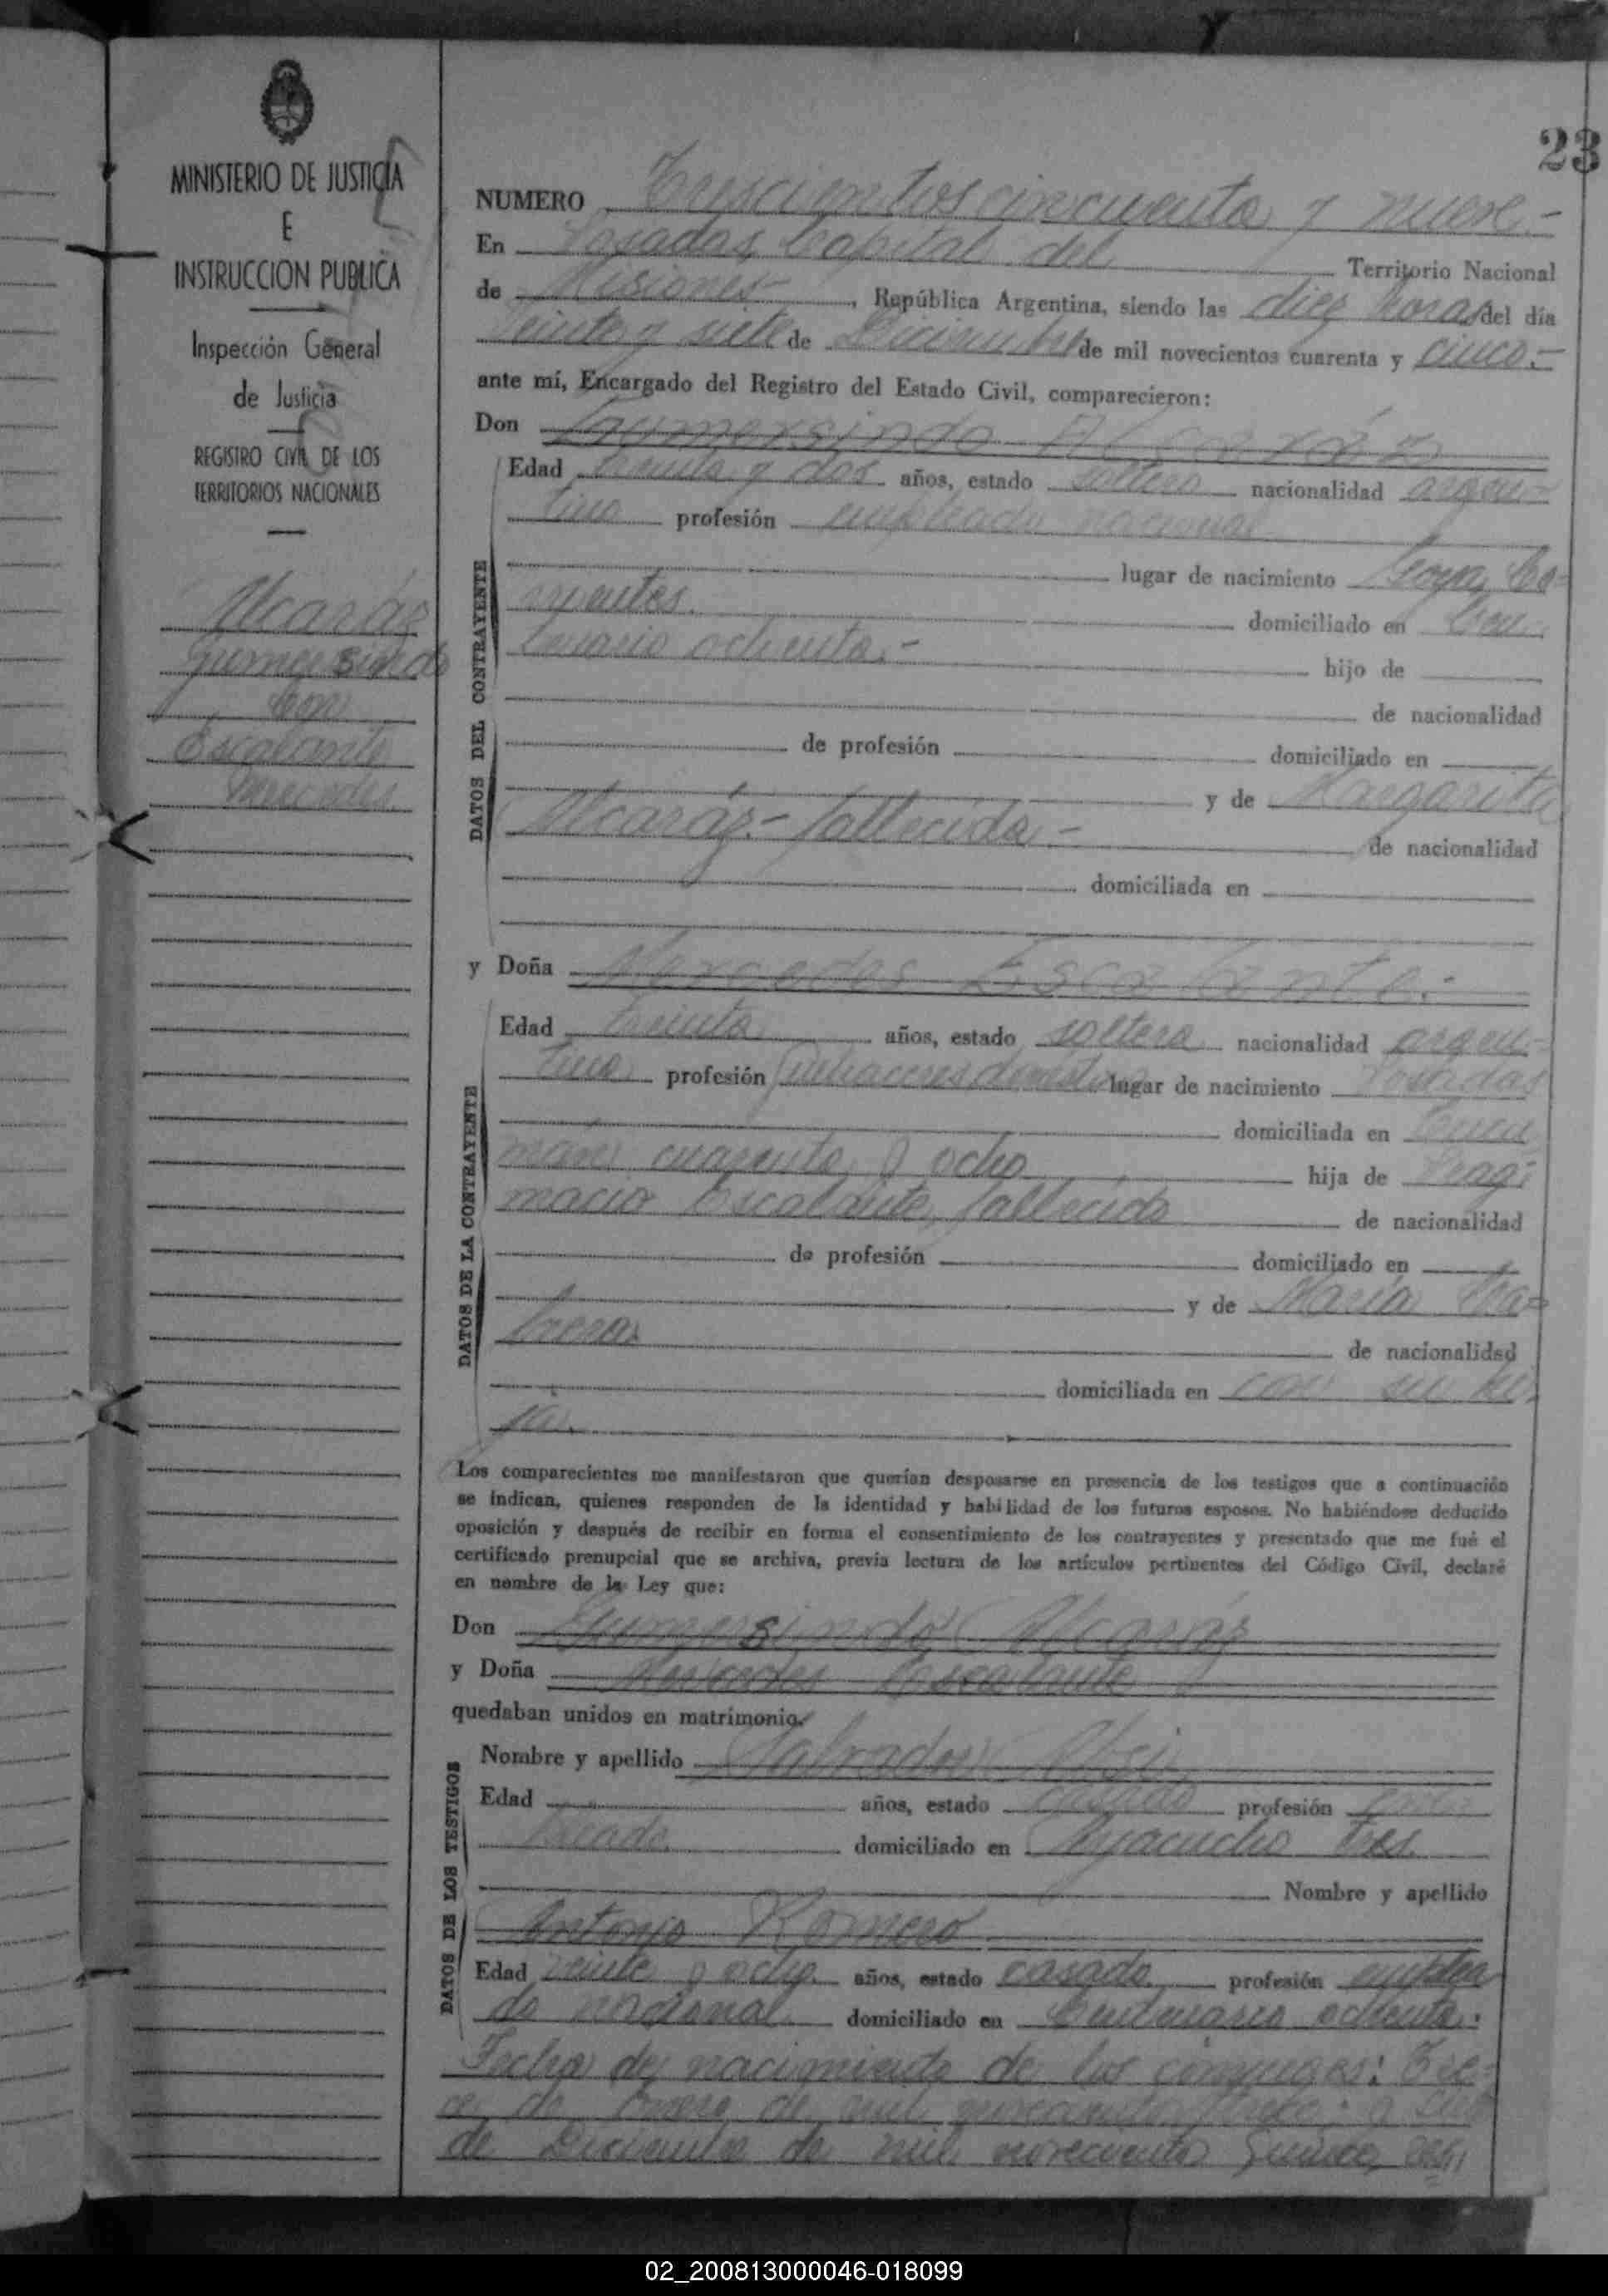 23
MINISTERIO DE JUSTICIA
E
INSTRUCCION PUBLICA
Inspección General
de Justicia
REGISTRO CIVIL DE LOS
TERRITORIOS NACIONALES
Alcaráz
Gumersindo
con
Escalante
Mercedes
NUMERO Trescientos cincuenta y nueve.-
En Posadas, Capital del Territorio Nacional
de Misiones- , República Argentina, siendo las diez horas del día
veinte y siete de Diciembre de mil novecientos cuarenta y cinco.-
ante mí, Encargado del Registro del Estado Civil, comparecieron:
Don Gumersindo Alcaráz
DATOS DEL CONTRAYENTE
Edad treinta y dos años, estado soltero nacionalidad argen-
tino profesión empleado nacional
lugar de nacimiento Goya, Co-
rrientes. domiciliado en Cen
tenario ochenta.- hijo de
de nacionalidad
de profesión domiciliado en
y de Margarita
Alcaráz.- fallecida.- de nacionalidad
domiciliada en
y Doña Mercedes Escalante.-
DATOS DE LA CONTRAYENTE
Edad treinta años, estado soltera nacionalidad argen-
tina profesión Quehaceres domésticos lugar de nacimiento Posadas
domiciliada en Tucu
mán cuarenta y ocho hija de
macio Escalante, fallecido de nacionalidad
de profesión domiciliado en
y de María Ca-
brera. de nacionalidad
domiciliada en con su hi
ja.
Los comparecientes me manifestaron que querían desposarse en presencia de los testigos que a continuación
se indican, quienes responden de la identidad y habilidad de los futuros esposos. No habiéndose deducido
oposición y después de recibir en forma el consentimiento de los contrayentes y presentado que me fué el
certificado prenupcial que se archiva, previa lectura de los artículos pertinentes del Código Civil, declaré
en nombre de la Ley que:
Don Gumersindo Alcaráz
y Doña Mercedes Escalante
quedaban unidos en matrimonio.
DATOS DE LOS TESTIGOS
Nombre y apellido Salvador
Edad años, estado casado profesión
domiciliado en Ayacucho tres.
Nombre y apellido
Antonio Romero
Edad veinte y ocho años, estado casado profesión emplea
do nacional domiciliado en Centenario ochenta.
Fecha de nacimiento de los cónyuges: Tre-
ce de Enero de mil novecientos trece; y
de Diciembre de mil novecientos quince,
02_200813000046-018099